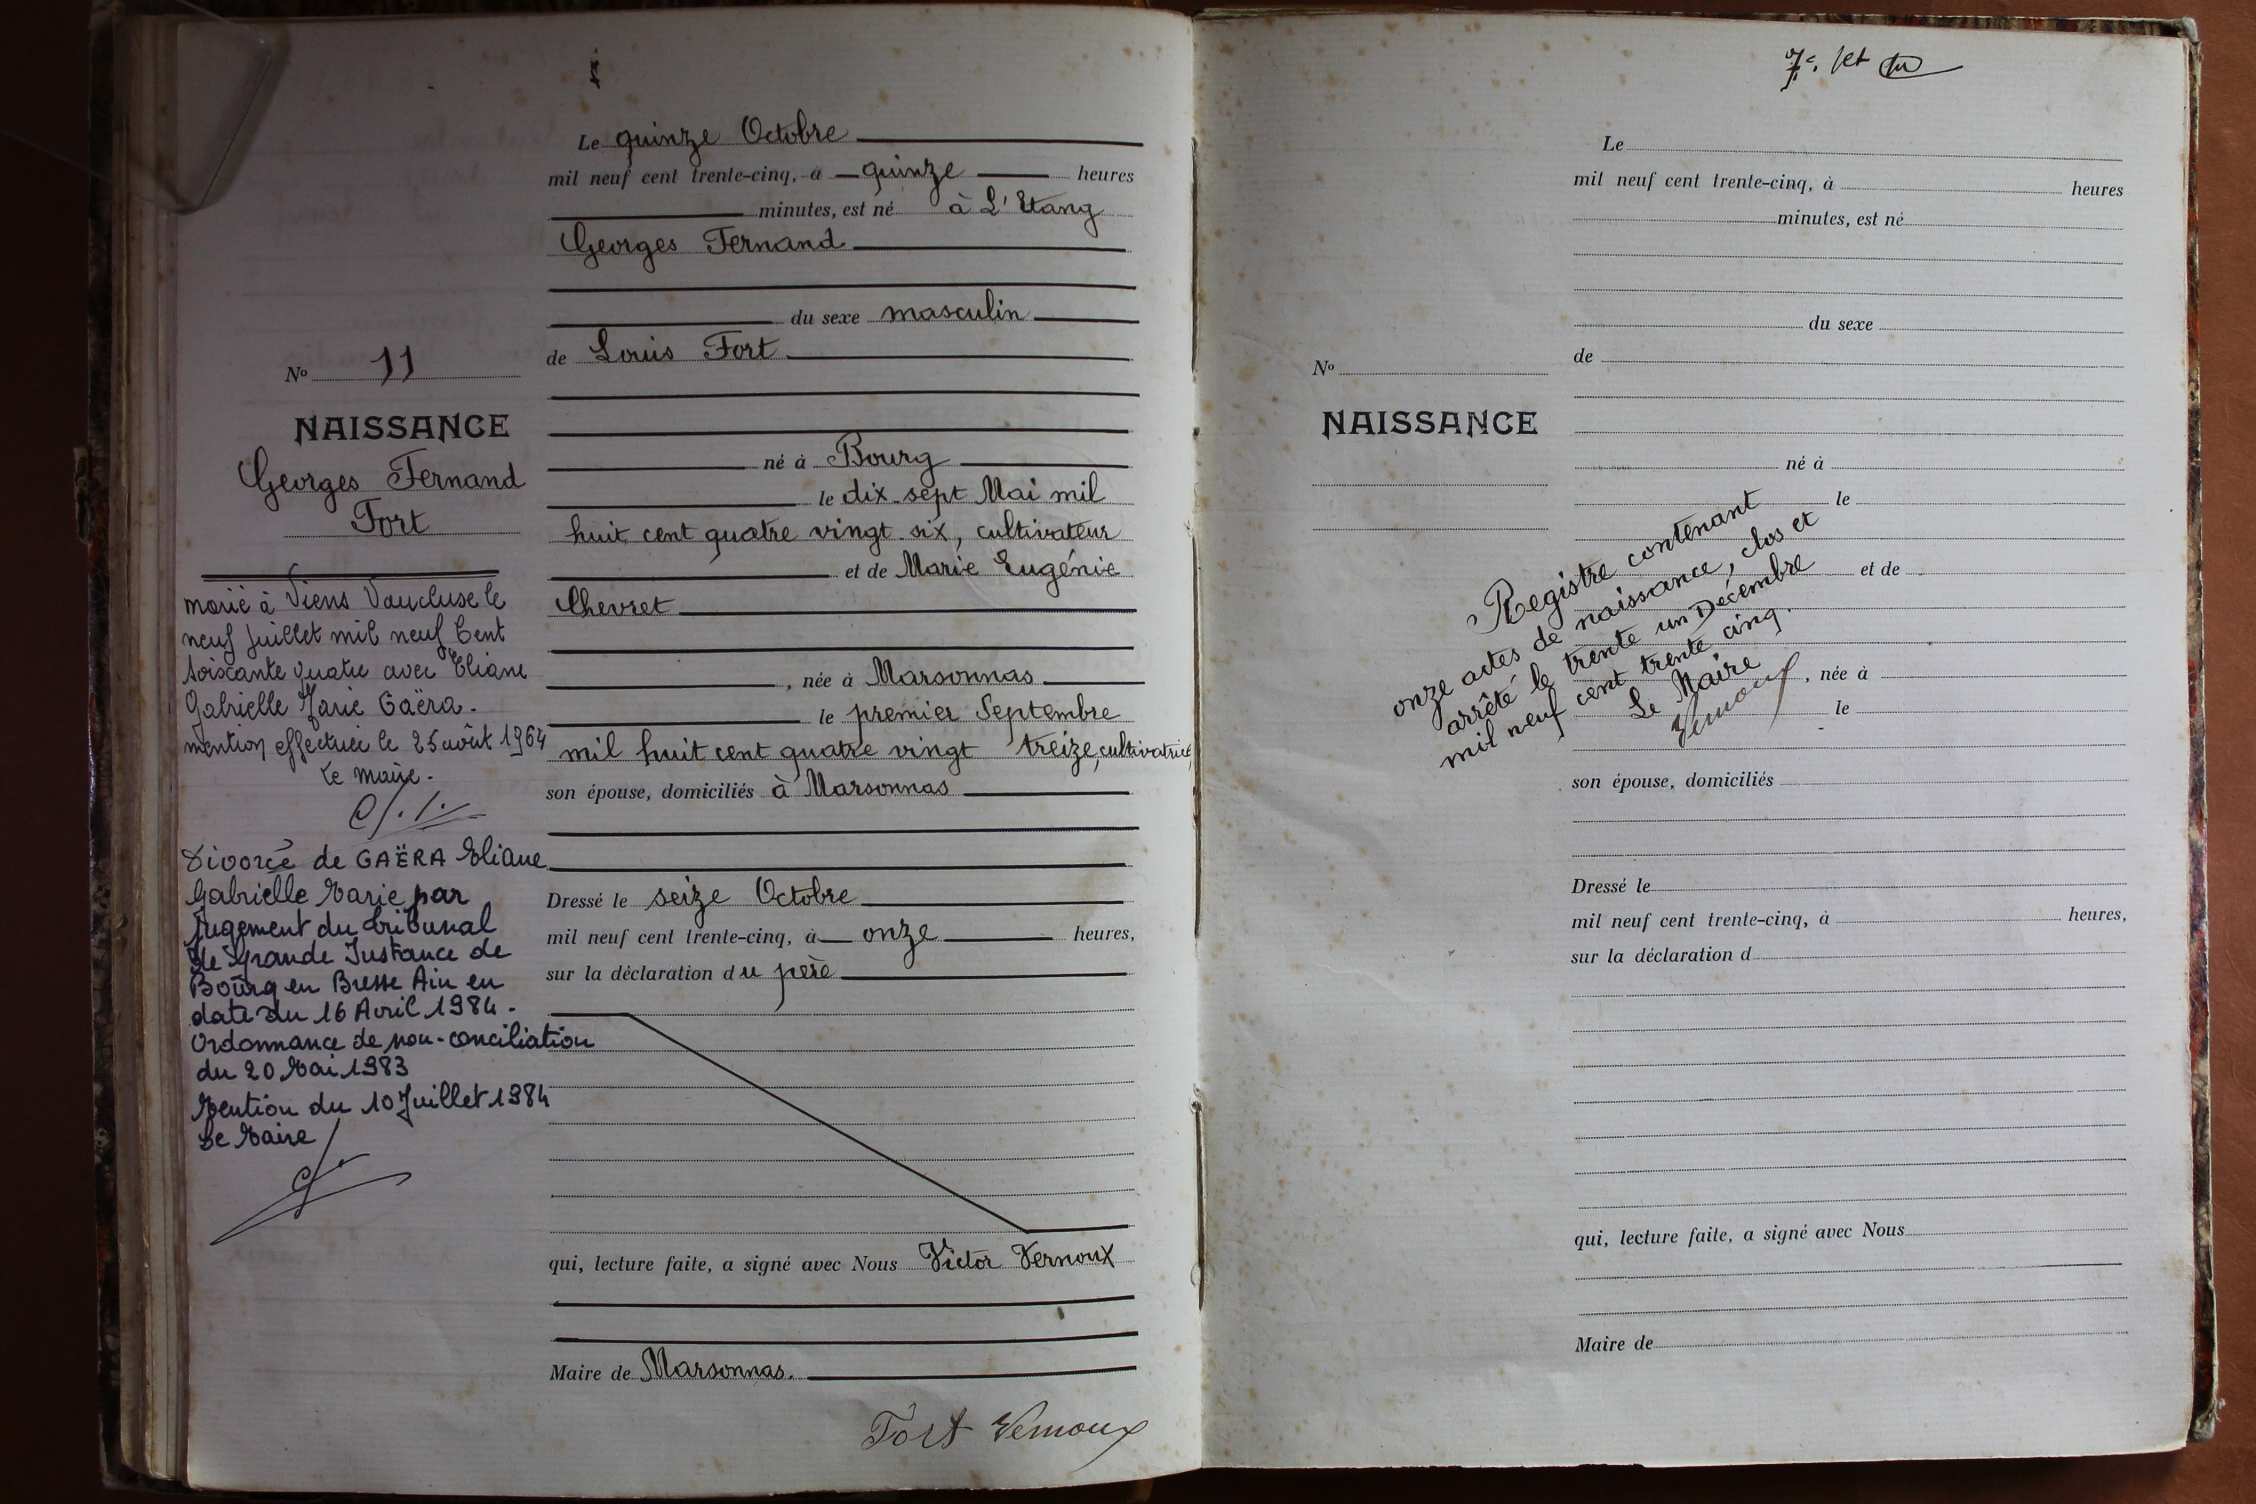 Le quinze Octobre
mil neuf cent trente-cinq, à quinze heures
minutes, est né à L'Etang
Georges Fernand
du sexe masculin
de Louis Fort
né à Bourg
le dix-sept Mai mil
huit cent quatre vingt-six, cultivateur
et de Marie Eugénie
Chevret
, née à Marsonnas
le premier Septembre
mil huit cent quatre vingt treize, cultivatrice,
son épouse, domiciliés à Marsonnas
Dressé le seize Octobre
mil neuf cent trente-cinq, à onze heures,
sur la déclaration du père
qui, lecture faite, a signé avec Nous Victor Vernoux
Maire de Marsonnas.
Fort Vernoux
No 11
NAISSANCE
Georges Fernand
Fort
marié à Viens Vaucluse le
neuf juillet mil neuf Cent
soixante quatre avec Eliane
Gabrielle Marie Gaëra.
mention effectuée le 25 août 1964
Le maire.
Divorcé de GAËRA Eliane
Gabrielle Marie par
Jugement du tribunal
de Grande Instance de
Bourg en Bresse Ain en
date du 16 Avril 1984.
Ordonnance de non-conciliation
du 20 Mai 1983
Mention du 10 Juillet 1984
Le Maire
Le
mil neuf cent trente-cinq, à heures
minutes, est né
du sexe
de
No
NAISSANCE
né à
le
et de
, née à
le
son épouse, domiciliés
Registre contenant
onze actes de naissance, clos et
arrêté le trente un Décembre
mil neuf cent trente cinq.
Le Maire
Vernoux
Dressé le
mil neuf cent trente-cinq, à heures,
sur la déclaration d
qui, lecture faite, a signé avec Nous
Maire de